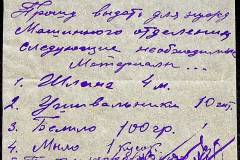 Прошу выдать для нужд
Машинного отделения
следующие необходимые
материалы ...
1. Шланга 4 м.
2. Умывальники 10 шт.
3. Бельло 100 гр.
4. Мыло 1 кусок.